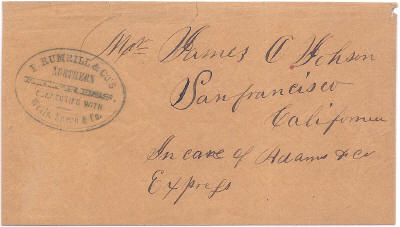 I. RUMRILL & CO'S
NORTHERN
EXPRESS
CONNECTING WITH
Wells, Fargo & Co.
Mr. James C Johson
Sanfrancisco
California
In care of Adams & Co
Express